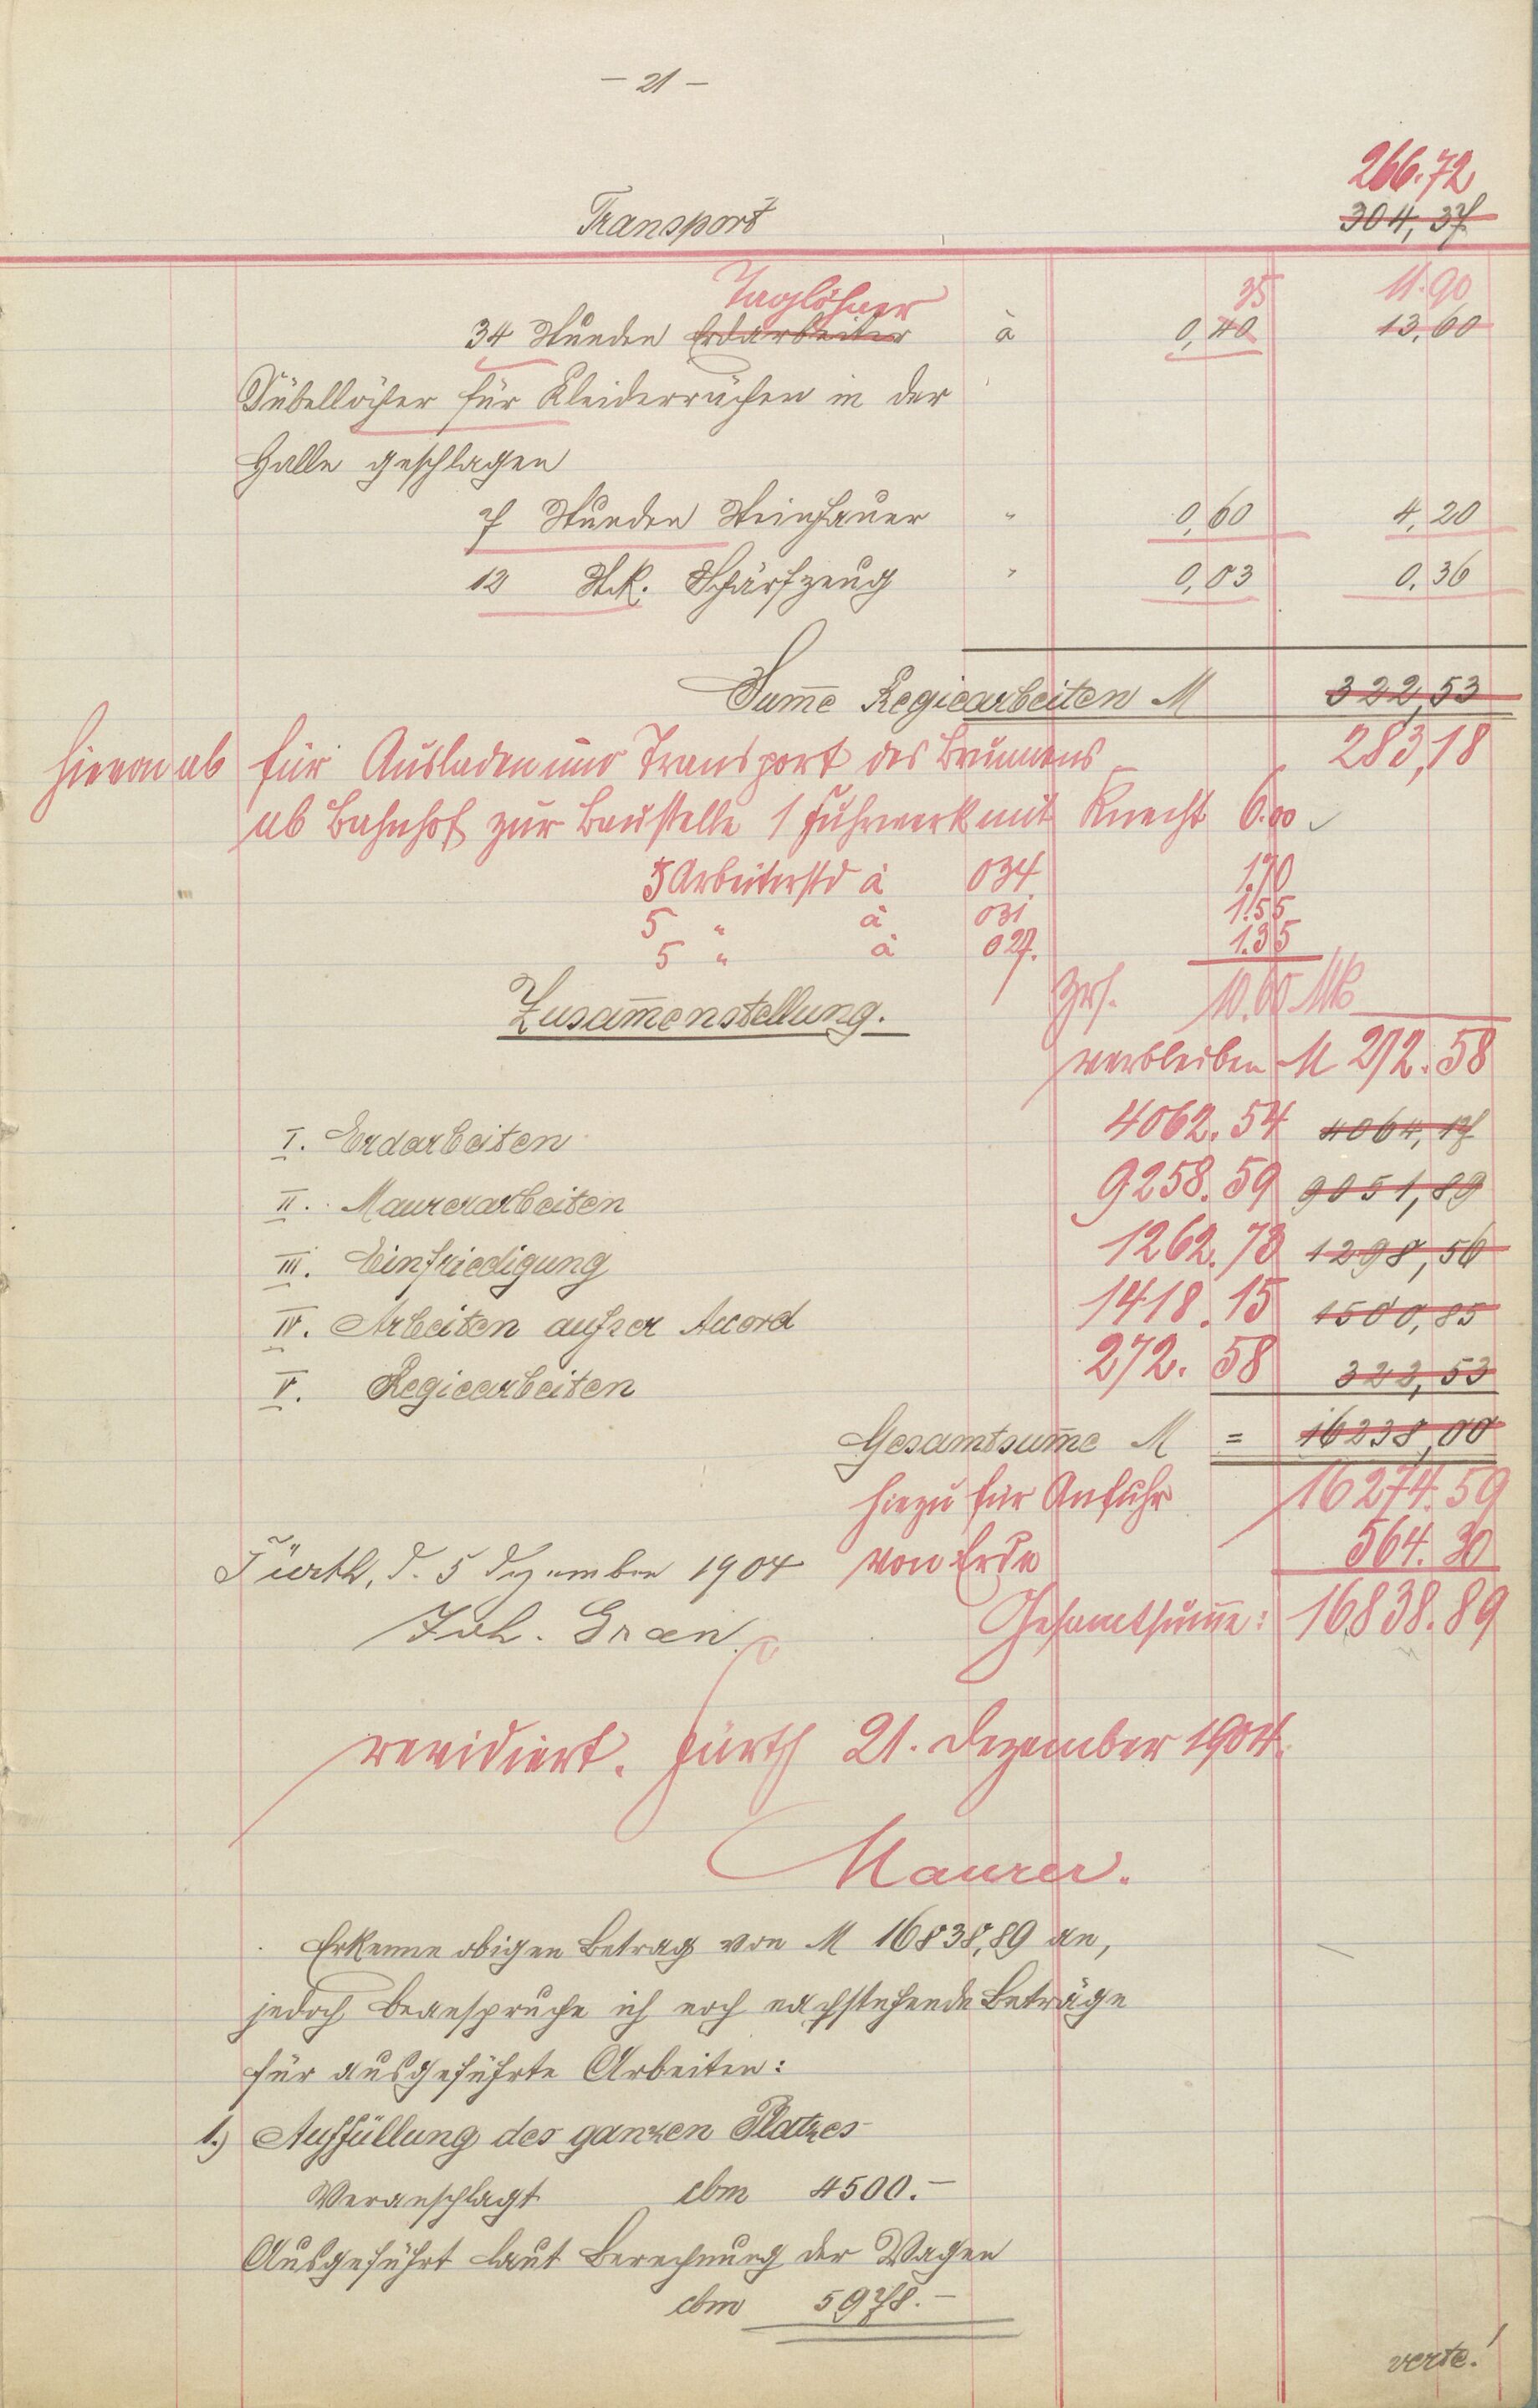 – 21 –
266.72
Transport 304,37
Taglöhner 35 11.90
34 Stunden Erdarbeiter à 0,40 13,60
Dübellöcher für Kleiderrächen in der
Halle geschlagen
7 Stunden Steinhauer " 0,60 4,20
12 Stk. Schärfzeug " 0,03 0,36
Sum̄e Regiearbeiten M 322,53
283,18
hievon ab für Ausladen und Transport des Brunnens
ab Bahnhof zur Baustelle 1 Fuhrwerk mit Knecht 6.00
5 Arbeiterstd à 034 1.70
5 " à 031 1.55
5 " à 027. 1.35
Zus. 10.60 Mk
Zusam̄enstellung.
verbleiben M 272.58
I. Erdarbeiten 4062.54 4064,17
II. Maurerarbeiten 9258.59 9051,89
III. Einfriedigung 1262.73 1298,56
IV. Arbeiten außer Accord 1418.15 1500,85
V. Regiearbeiten 272.58 322,53
Gesamtsum̄e M = 16238,00
hiezu für Anfuhr 16274.59
von Erde 564.30
Fürth, d. 5 Dezember 1904
Gesamtsum̄e: 16838.89
Joh. Gran
revidiert. Fürth 21. Dezember 1904.
Maurer.
Erkenne obigen Betrag von M 16838,89 an,
jedoch beanspruche ich noch nachstehende Beträge
für ausgeführte Arbeiten:
1.) Auffüllung des ganzen Platzes
Veranschlagt cbm 4500.–
Ausgeführt laut Berechnung der Wagen
cbm 5978.–
verte!